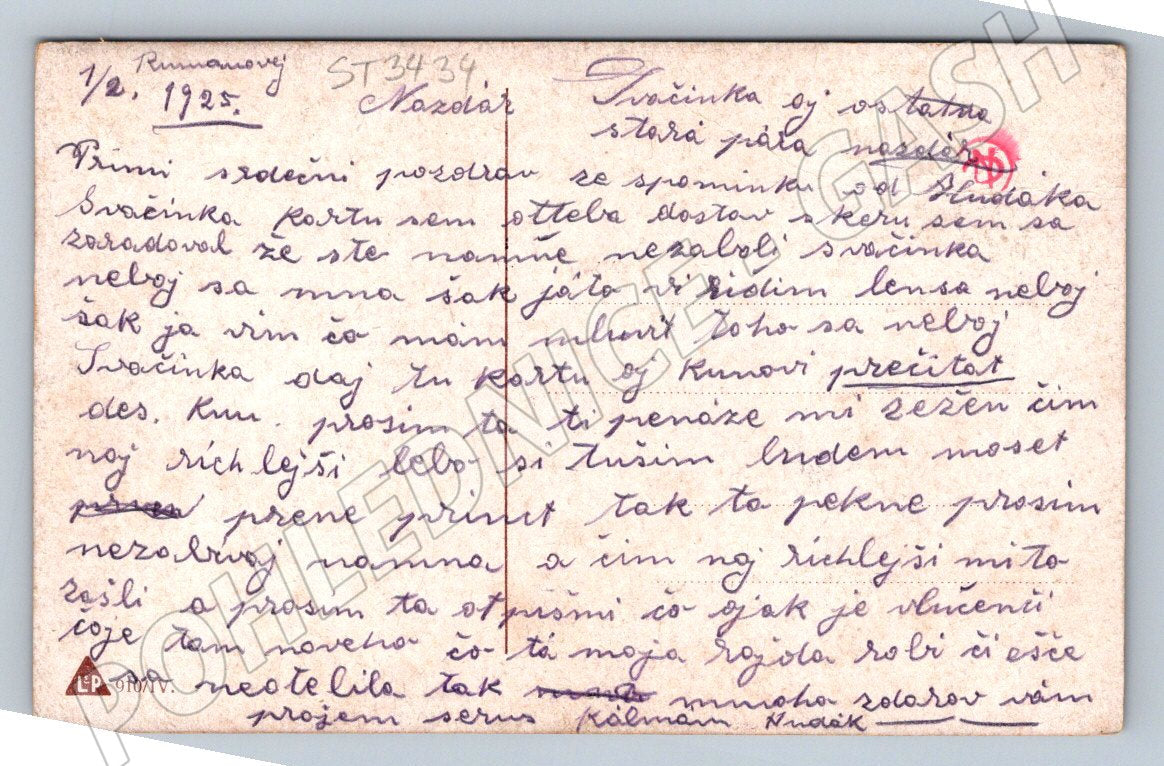 Rumanovej
1/2. 1925.
ST3434
Nazdár
Svačinka aj ostatna
stará pára nazdár
Primi srdečni pozdrav ze spominku od Hudáka
Svačinka kartu sem otteba dostav skeru sem sa
zaradoval ze ste namňe nezaboli svačinka
neboj sa mna šak játa vi ridim lensa neboj
šak ja vim čo mám mluvit toho sa neboj
Svačinka daj tu kartu aj Kunovi prečitat
des. Kun. prosim ta ti penáze mi zežen čim
naj richlejši lebo si tušim budem moset
prene primt tak ta pekne prosim
nezabuvaj namna a čim naj richlejši mi to
zašli a prosim ta otpišmi čo ajak je vlučenči
čoje tam noveho čo tá moja rajda robi či ešče
sa neotelila tak mnoho zdarov vám
prajem servus Kálmám Hudák
L&P 910/IV.
POHLEDNICE-GASH